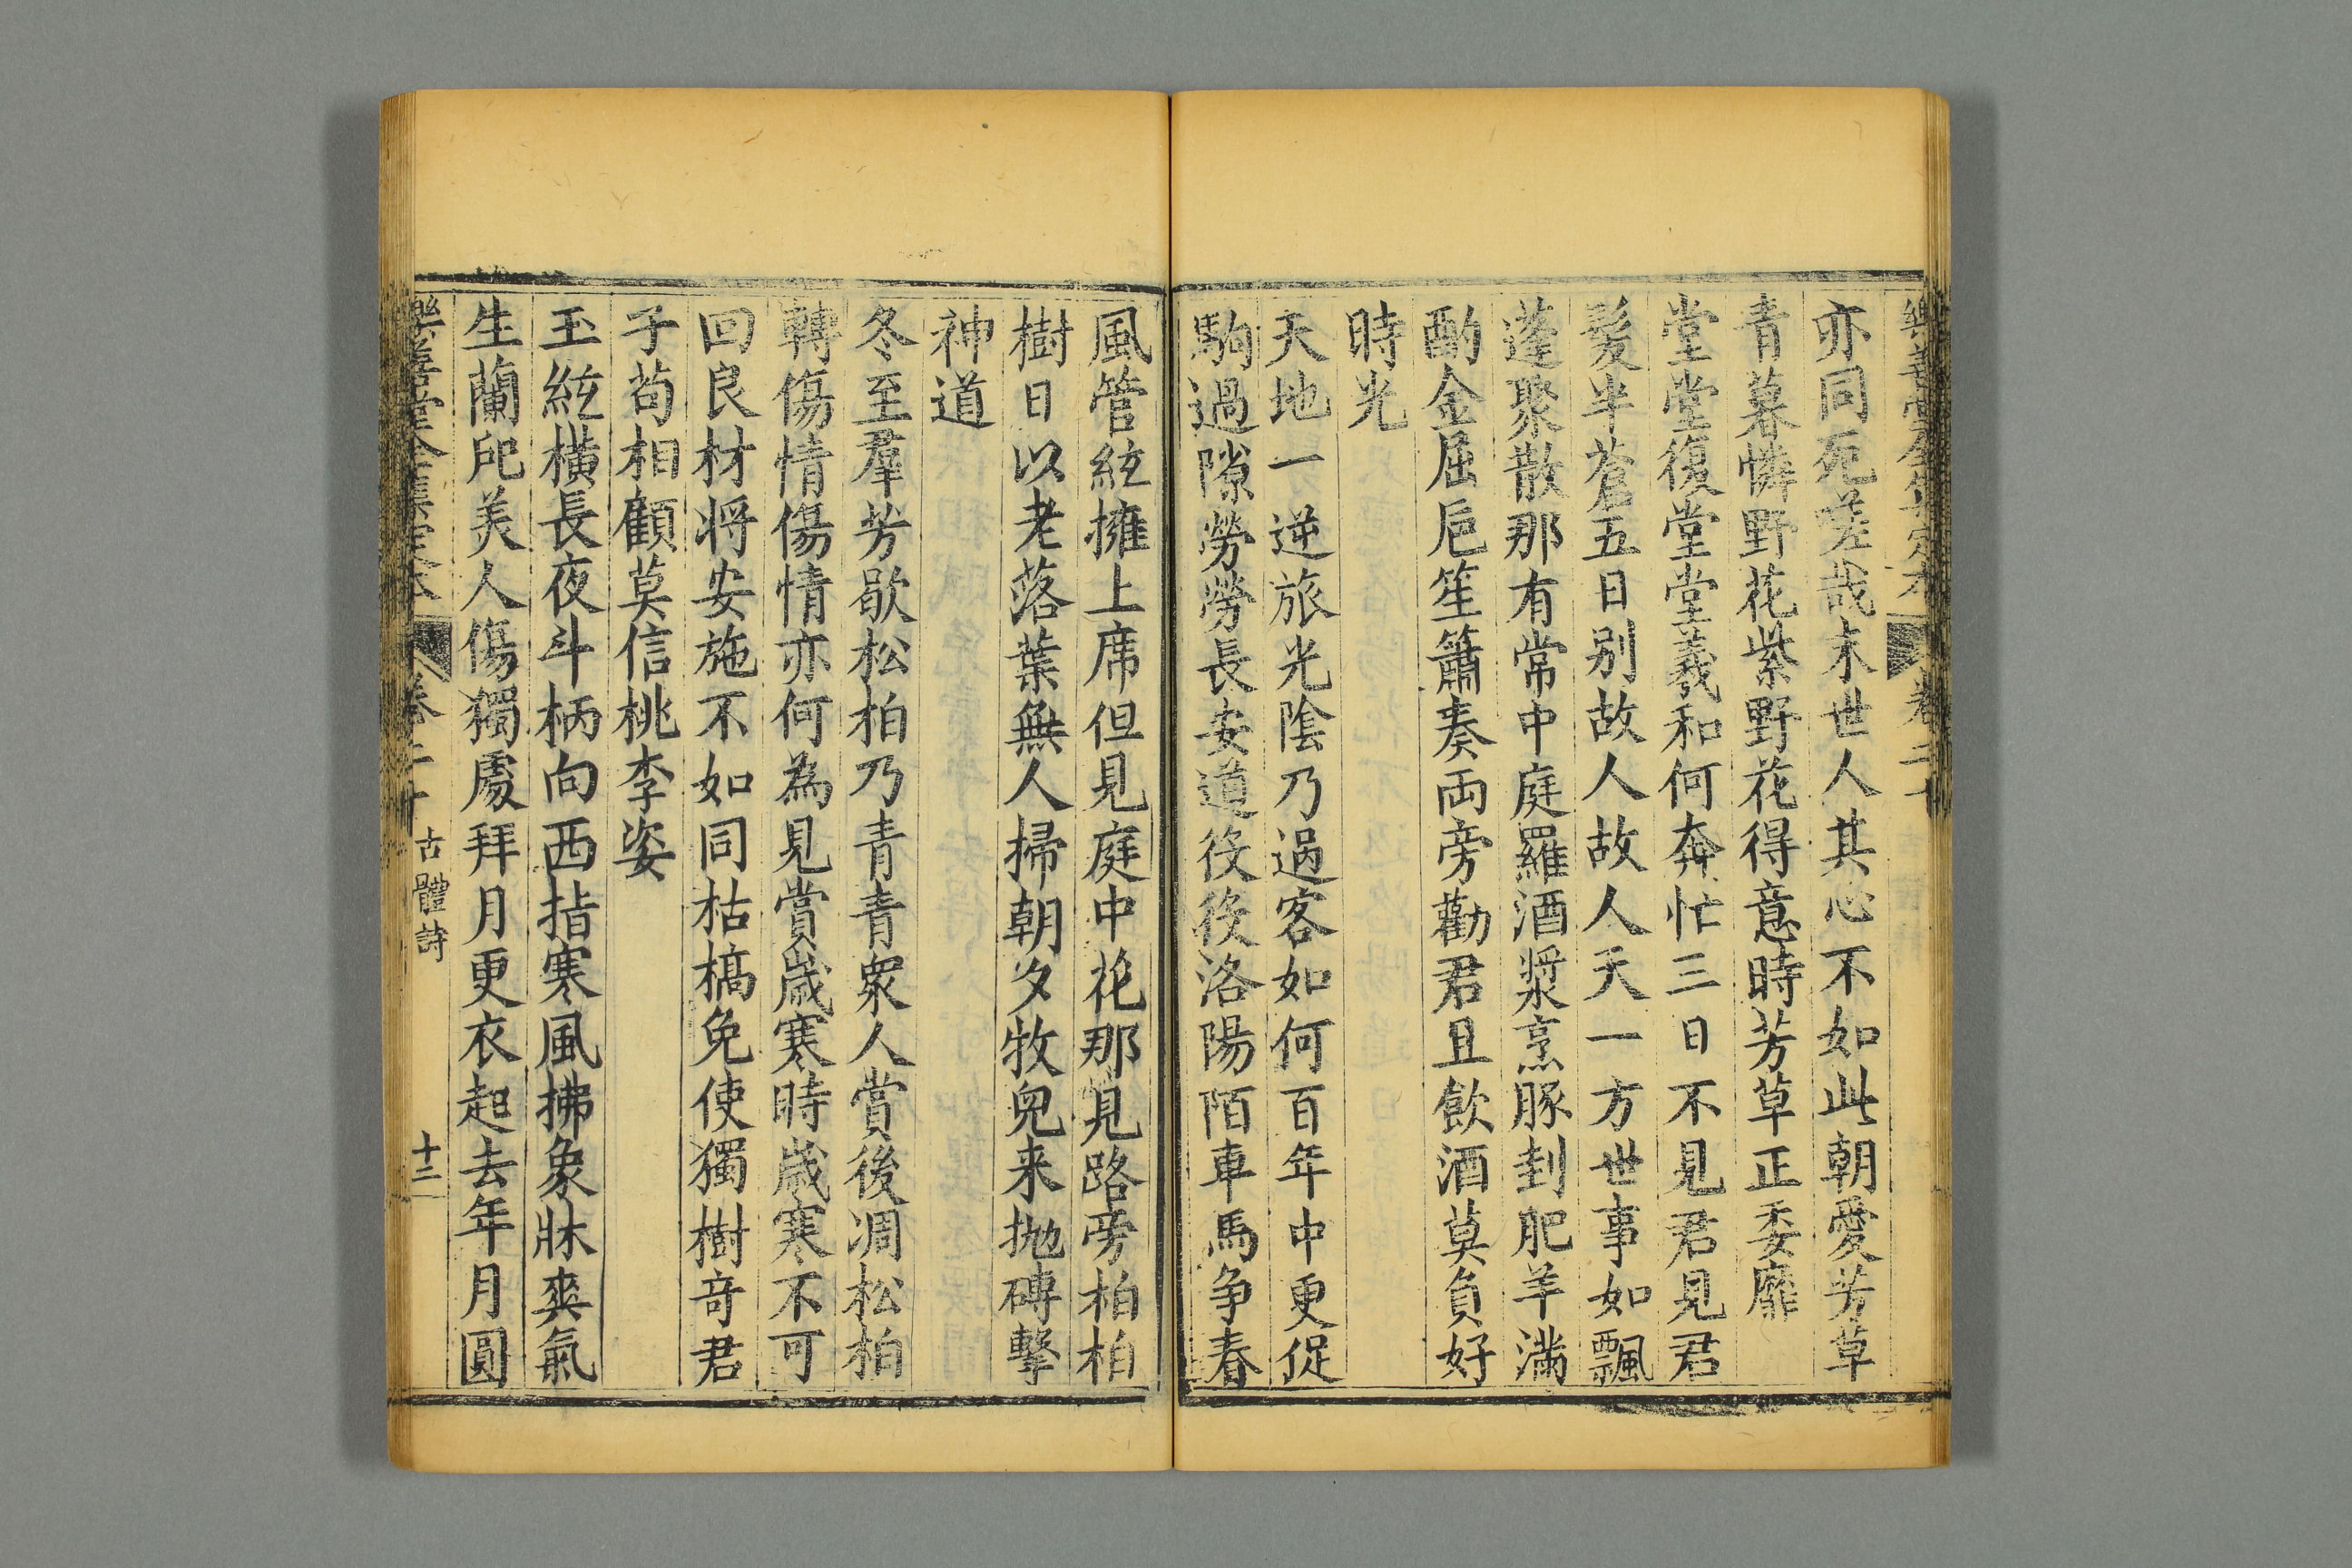 樂善堂全集定本 卷二十
亦同死嗟哉末世人其心不如此朝愛芳草
青暮憐野花紫野花得意時芳草正委靡
堂堂復堂堂羲和何奔忙三日不見君見君
髮半蒼五日别故人故人天一方世事如飄
蓬聚散那有常中庭羅酒漿烹豚刲肥羊滿
酌金屈巵笙簫奏两旁勸君且飲酒莫負好
時光
天地一逆旅光陰乃過客如何百年中更促
駒過隙勞勞長安道役役洛陽陌車馬争春
風管絃擁上席但見庭中花那見路旁柏柏
樹日以老落葉無人掃朝夕牧兒来抛磚擊
神道
冬至羣芳歇松柏乃青青衆人賞後凋松柏
轉傷情傷情亦何為見賞歲寒時歲寒不可
回良材将安施不如同枯槁免使獨樹竒君
子苟相顧莫信桃李姿
玉絃橫長夜斗柄向西指寒風拂象牀爽氣
生蘭戺美人傷獨處拜月更衣起去年月圓
樂善堂全集定本 卷二十 古體詩 十二